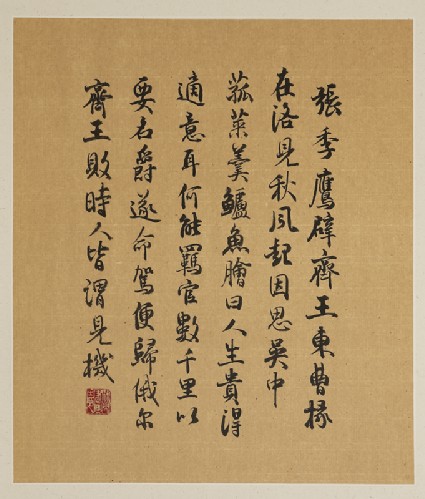 張季鷹辟齊王東曹掾
在洛見秋風起因思吳中
菰菜羹鱸魚膾曰人生貴得
適意耳何能羈宦數千里以
要名爵遂命駕便歸俄尔
齊王敗時人皆謂見機